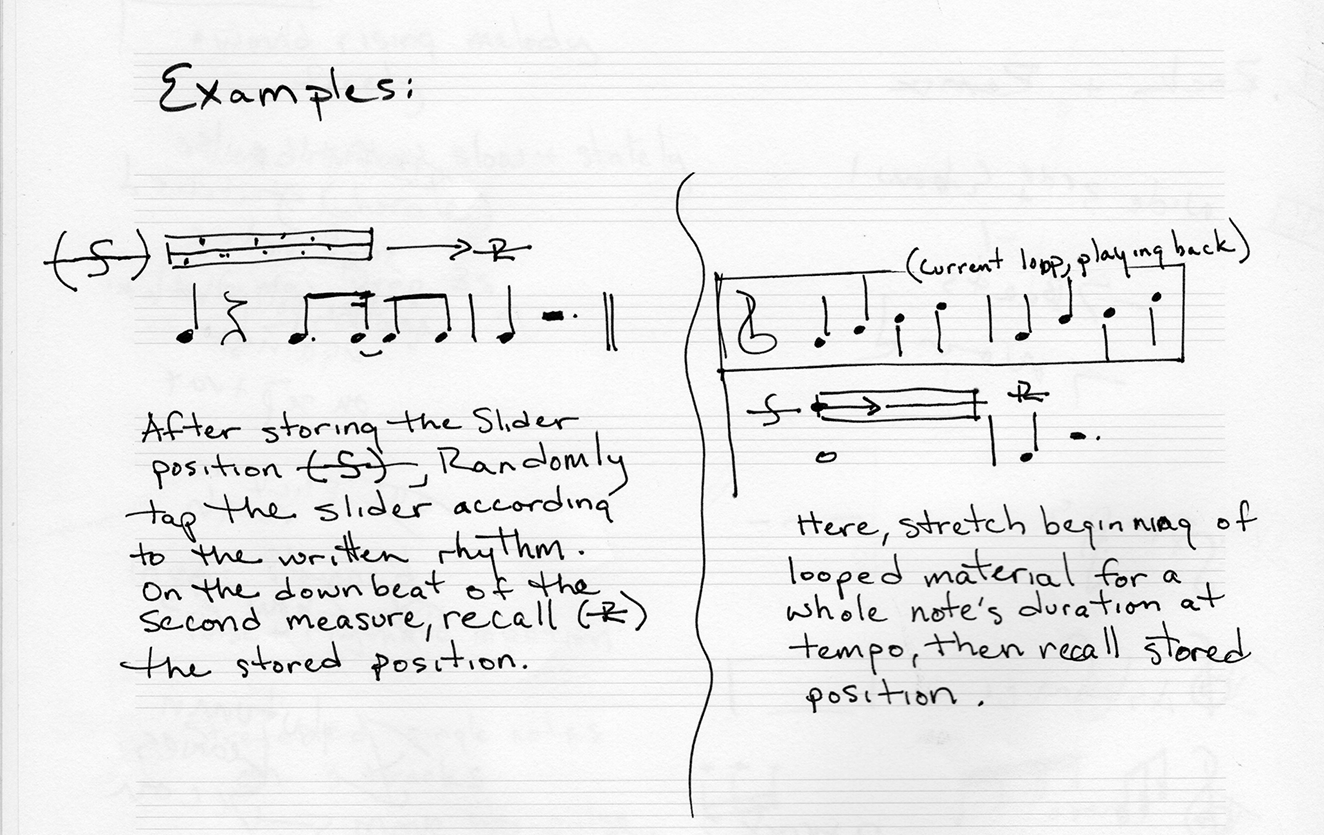 Examples:
(S)
R
After storing the Slider
position (S), Randomly
tap the slider according
to the written rhythm.
On the downbeat of the
second measure, recall (R)
the stored position.
(current loop, playing back)
S
R
Here, stretch beginning of
looped material for a
whole note's duration at
tempo, then recall stored
position.